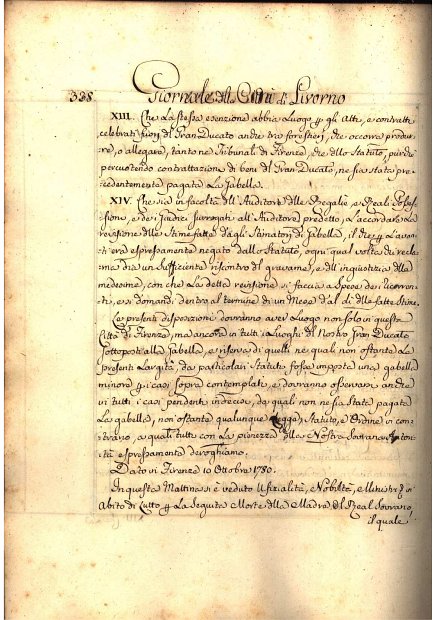 338 Giornale della Città di Livorno
XIII. Che la stessa esenzione abbia Luogo p gli Atti, e contratti
celebrati fuori del Gran Ducato anche tra forestieri, che occorra produr=
re, o allegare, tanto ne Tribunali di Firenze, che dello Statuto, purchè
percuotendo contrattazione di beni del Gran Ducato, ne sia stata pre=
cedentemente pagata La Gabella.
XIV. Che sia in facoltà dell' Auditore delle Regalie, e Reali Posses=
sioni, e dei Giudici surrogati all' Auditore predetto, L'accordare La
revisione delle Stime fatte dagli Stimatori di Gabella, il che p L'avan=
ti era espressamente negato dallo Statuto, ogni qual volta chi recla=
ma dia un sufficiente riscontro del gravame, e dell' ingiustizia delle
medesime, con che La detta revisione si faccia a Spese dei ricorren=
ti, e si domandi dentro al termine di un Mese dal dì delle fatte Stime.
Le presenti disposizioni dovranno aver Luogo non solo in questa
Città di Firenze, ma ancora in tutti i Luoghi del Nostro Gran Ducato
Sottoposti alla Gabella, e riserva di quelli ne quali non ostante Le
presenti Largità, da particolari Statuti fosse imposta una gabella
minore p i casi sopra contemplati, e dovranno osservarsi anche
in tutti i casi pendenti indecisi, da quali non ne sia Stata pagata
La gabella, non ostante qualunque Legge, Statuto, e Ordine in con=
trario, a quali tutti con La pienezza della Nostra Sovrana Autori=
tà espressamente deroghiamo.
Dato in Firenze 10 Ottobre 1780.
In questa Mattina si è veduto Ufizialità, Nobiltà, e Ministri in
Abito di Lutto p La Seguita Morte della Madre del Real Sovrano,
il quale